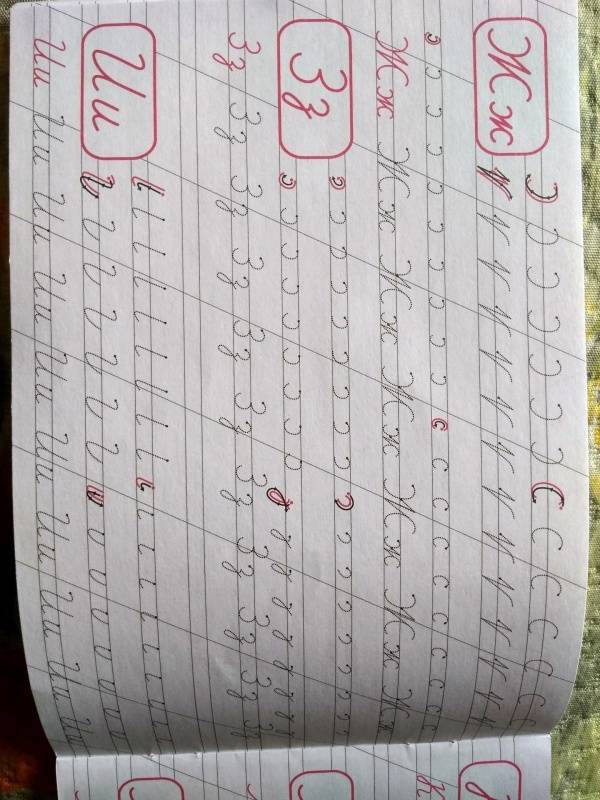 Жж
Жж Жж Жж Жж Жж Жж Жж
Зз
Зз Зз Зз Зз Зз Зз Зз Зз Зз Зз
Ии
Ии Ии Ии Ии Ии Ии Ии Ии Ии Ии